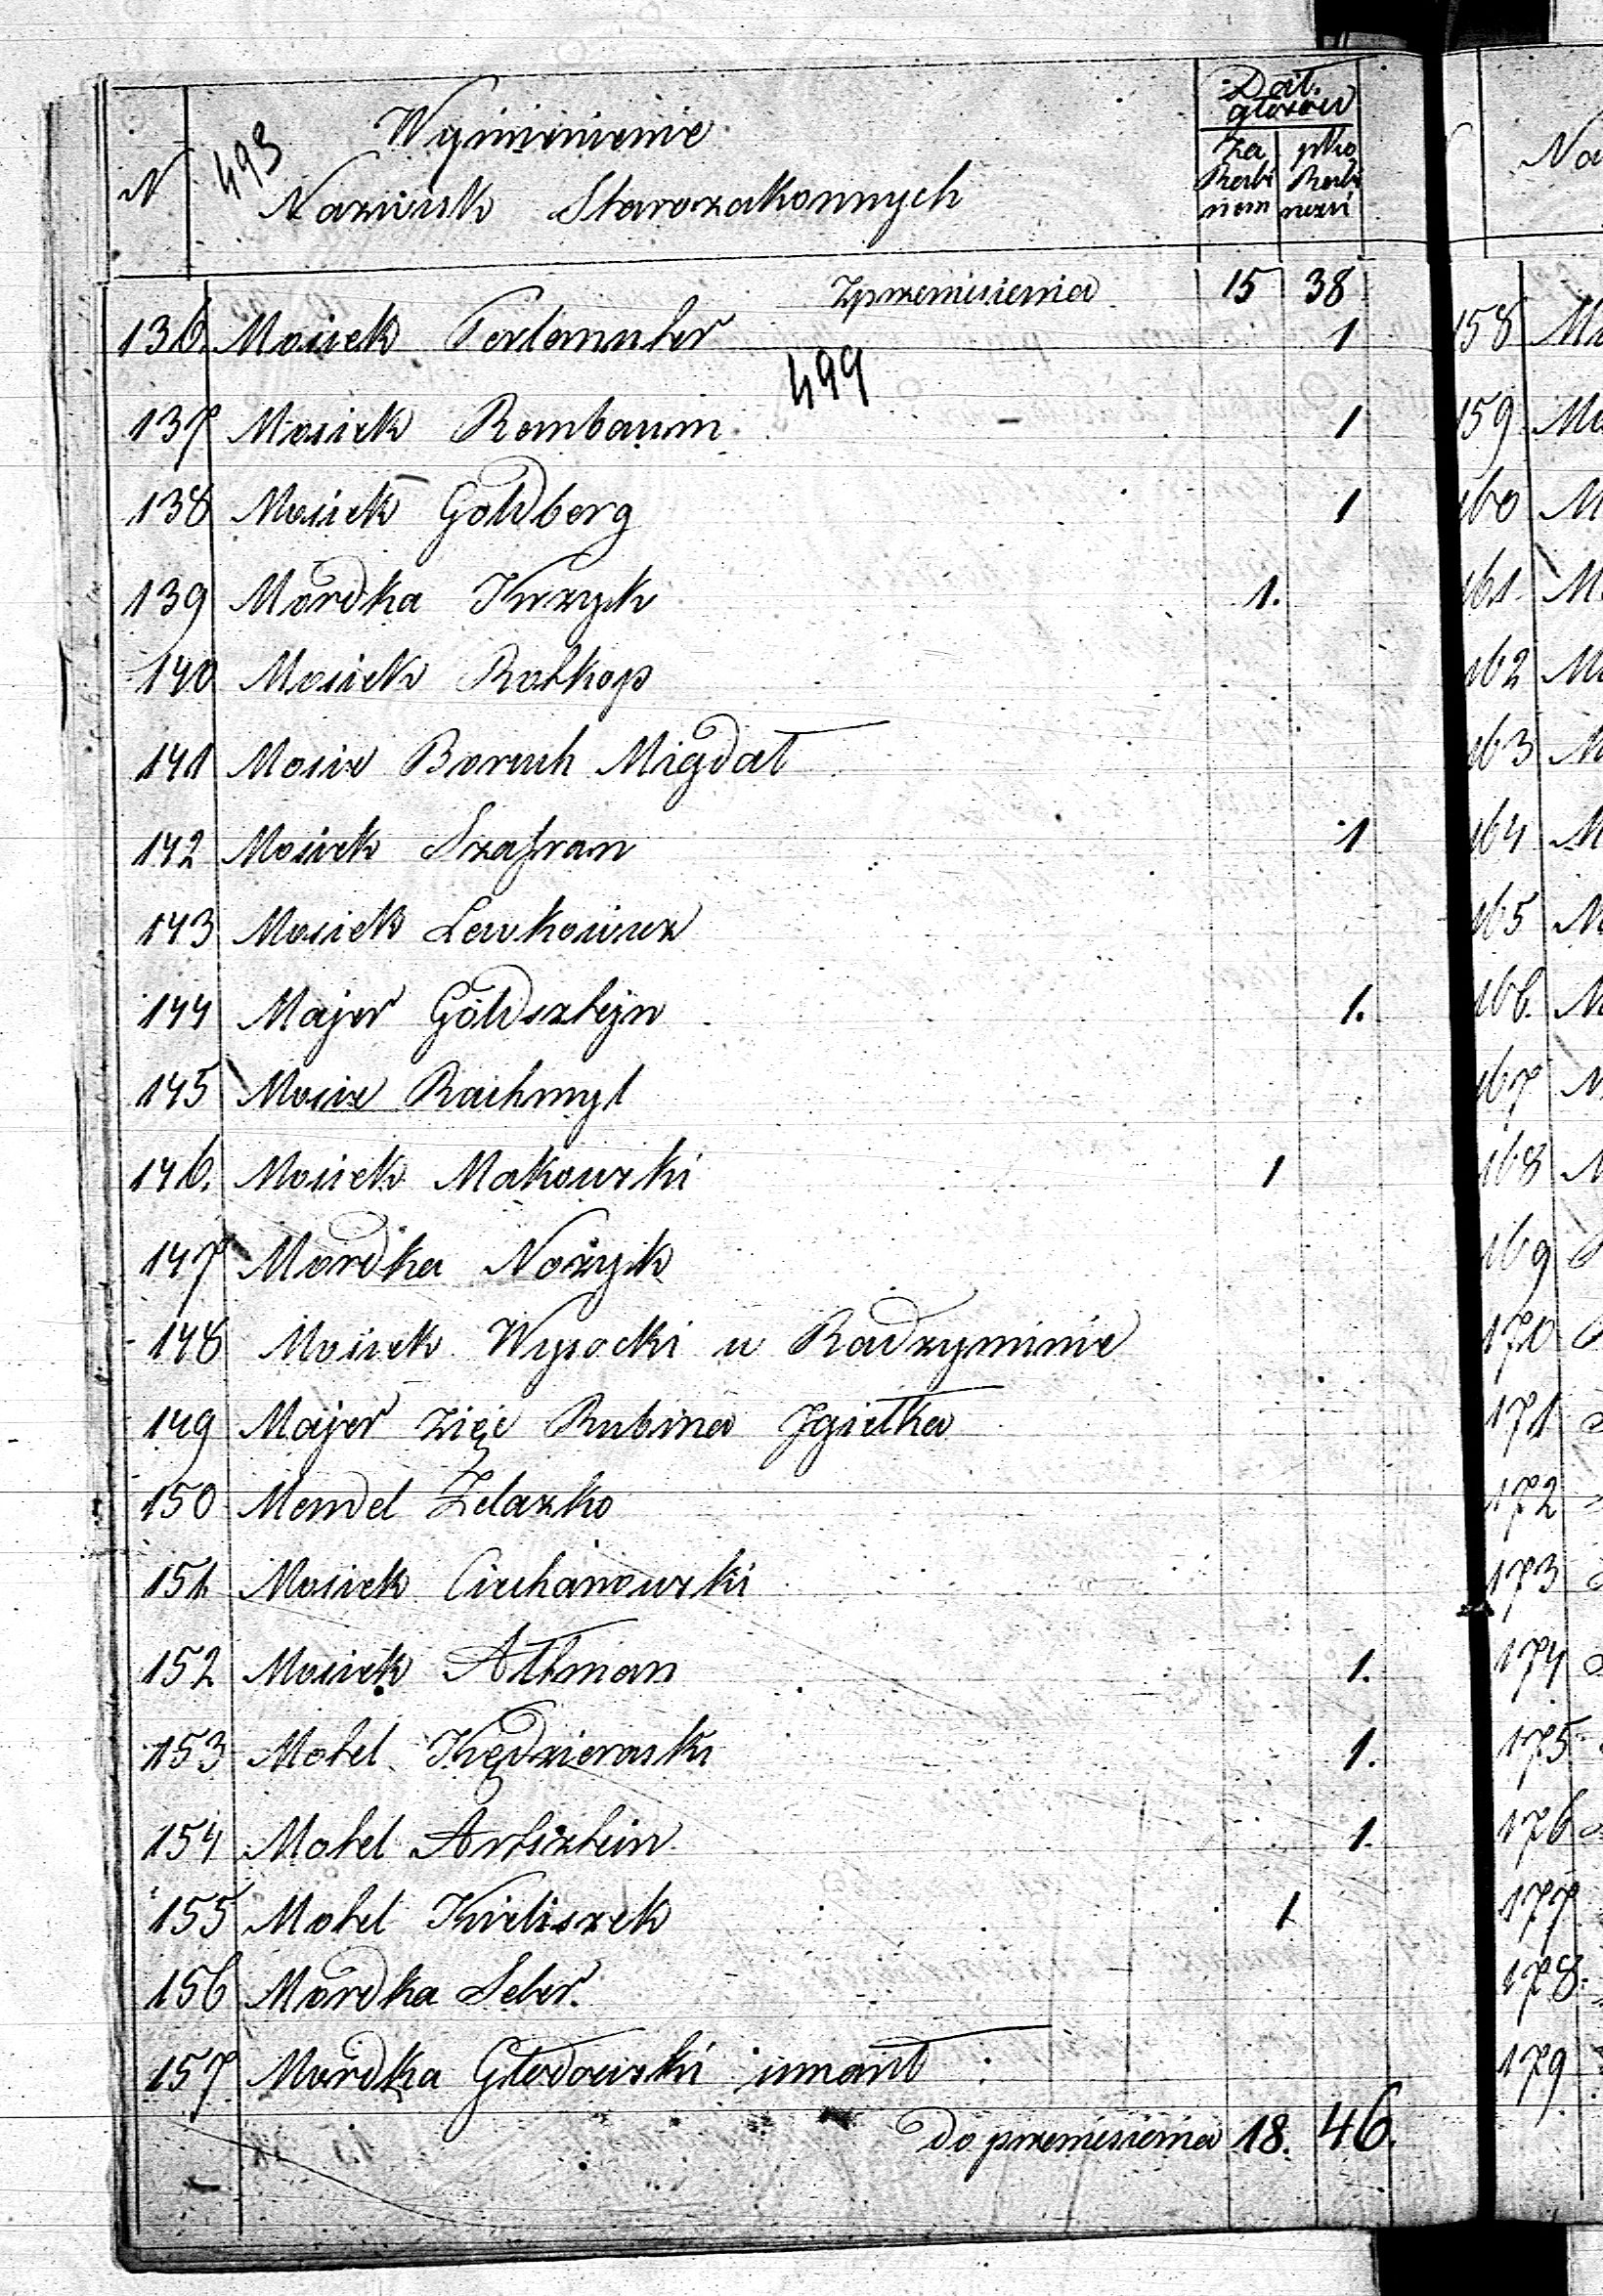 N 493 Wymienienie
Nazwisk Starozakonnych
Dał. głosów
za Rabi nem
ptko Rabi nowi
Zprzeniesienia 15 38
136. Mosiek Perlmuter 1
499
137 Mosiek Rombaum 1
138 Mosiek Goldberg 1
139 Mordka Krzyk 1.
140 Mosiek Rotkop
141 Mosie Boruch Migdał
142 Mosiek Szafran 1
143 Mosiek Lewkowicz
144 Majer Goldsztejn 1.
145 Mosie Rachmyl
146. Mosiek Makowski 1
147 Mordka Nożyk
148 Mosiek Wysocki w Radzyminie
149 Majer zięć Rubina Jgiełka
150 Mendel Żelazko
151 Mosiek Ciechanowski
152 Mosiek Altman 1.
153 Motel Kędzierski 1.
154 Motel Artsztein 1.
155 Motel Kieliszek 1
156 Mordka Seler.
157 Mordka Głodowski umarł
Do przeniesienia 18. 46.
No
158
159
160
161
162
163
164
165
166.
167
168
169
170
171
172
173
174
175
176
177
178
179